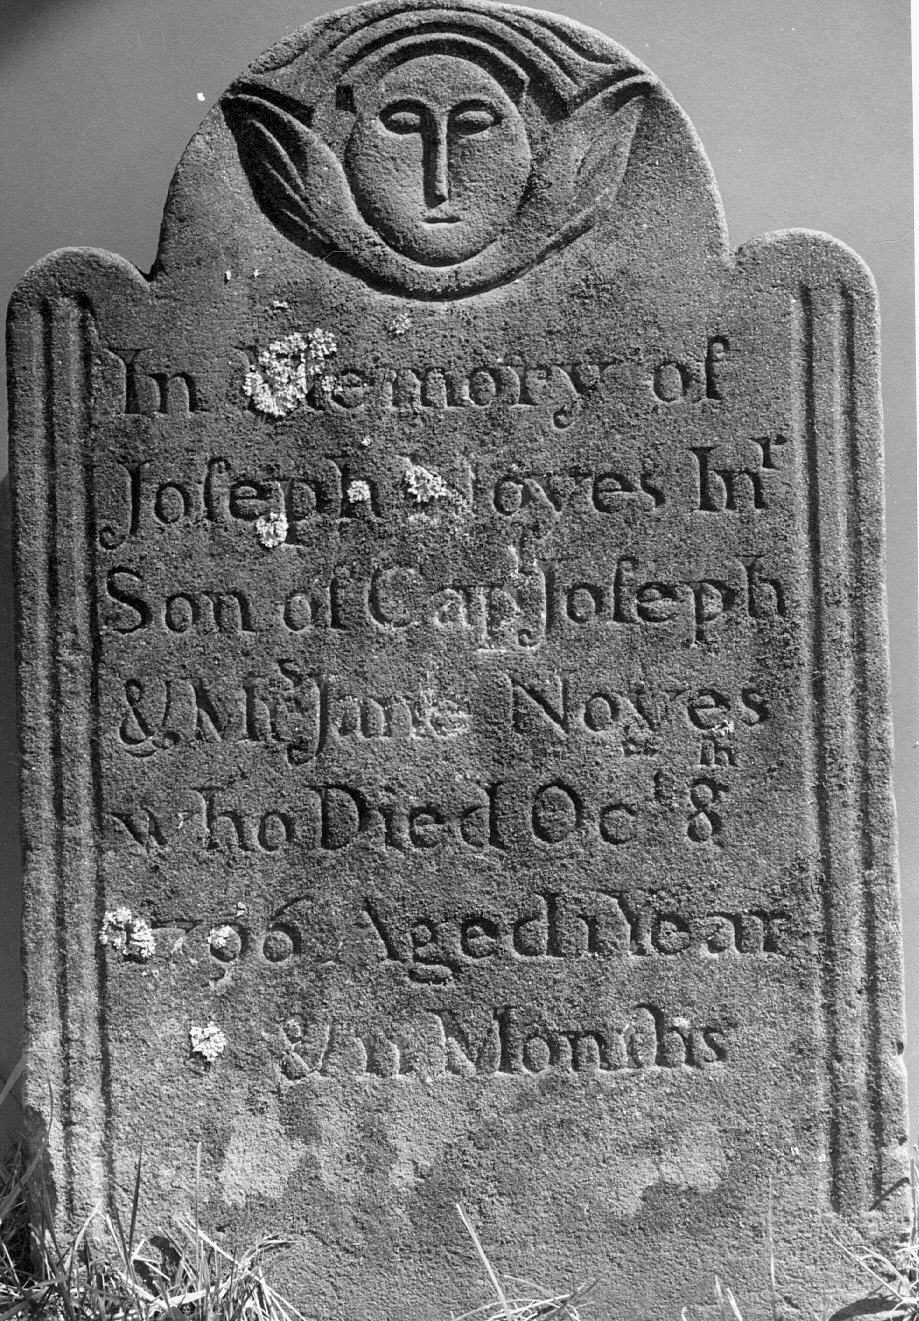 In Memory of
Joſeph Noyes Inr
Son of Capt Joſeph
& Mrs Jane Noyes
who Died Oct 8th
1796 Aged In Year
& in Months